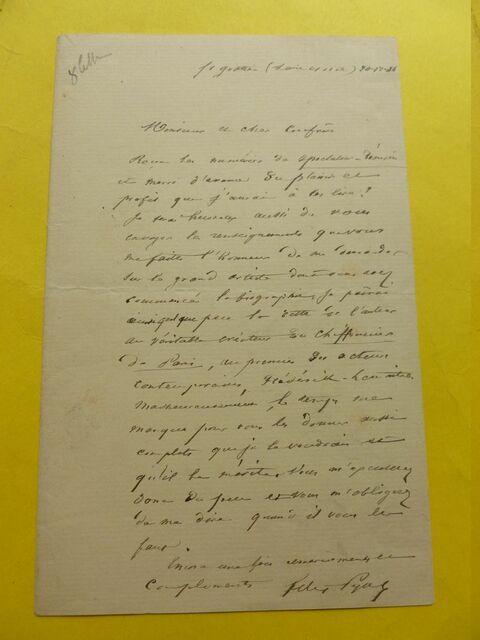 St Gratien (Seine et Oise)
Monsieur et cher Confrère
Reçu les numéros du Spectateur
et merci d'avance du plaisir et
profit que j'aurai à les lire!
Je serai heureux aussi de vous
envoyer les renseignements que vous
me faites l'honneur de me demander
sur le grand artiste dont vous avez
commencé la biographie. Je paierai
ainsi que je peux la dette de l'auteur
au véritable créateur du Chiffonnier
de Paris, au premier des acteurs
contemporains, Frédérick-Lemaître.
Malheureusement, le temps me
manque pour vous les donner aussi
complets que je le voudrais et
qu'il le mérite. Vous m'excuserez
donc du peu et vous m'obligerez
de me dire quand il vous le
faut.
Encore une fois remerciements et
compliments Félix Pyat